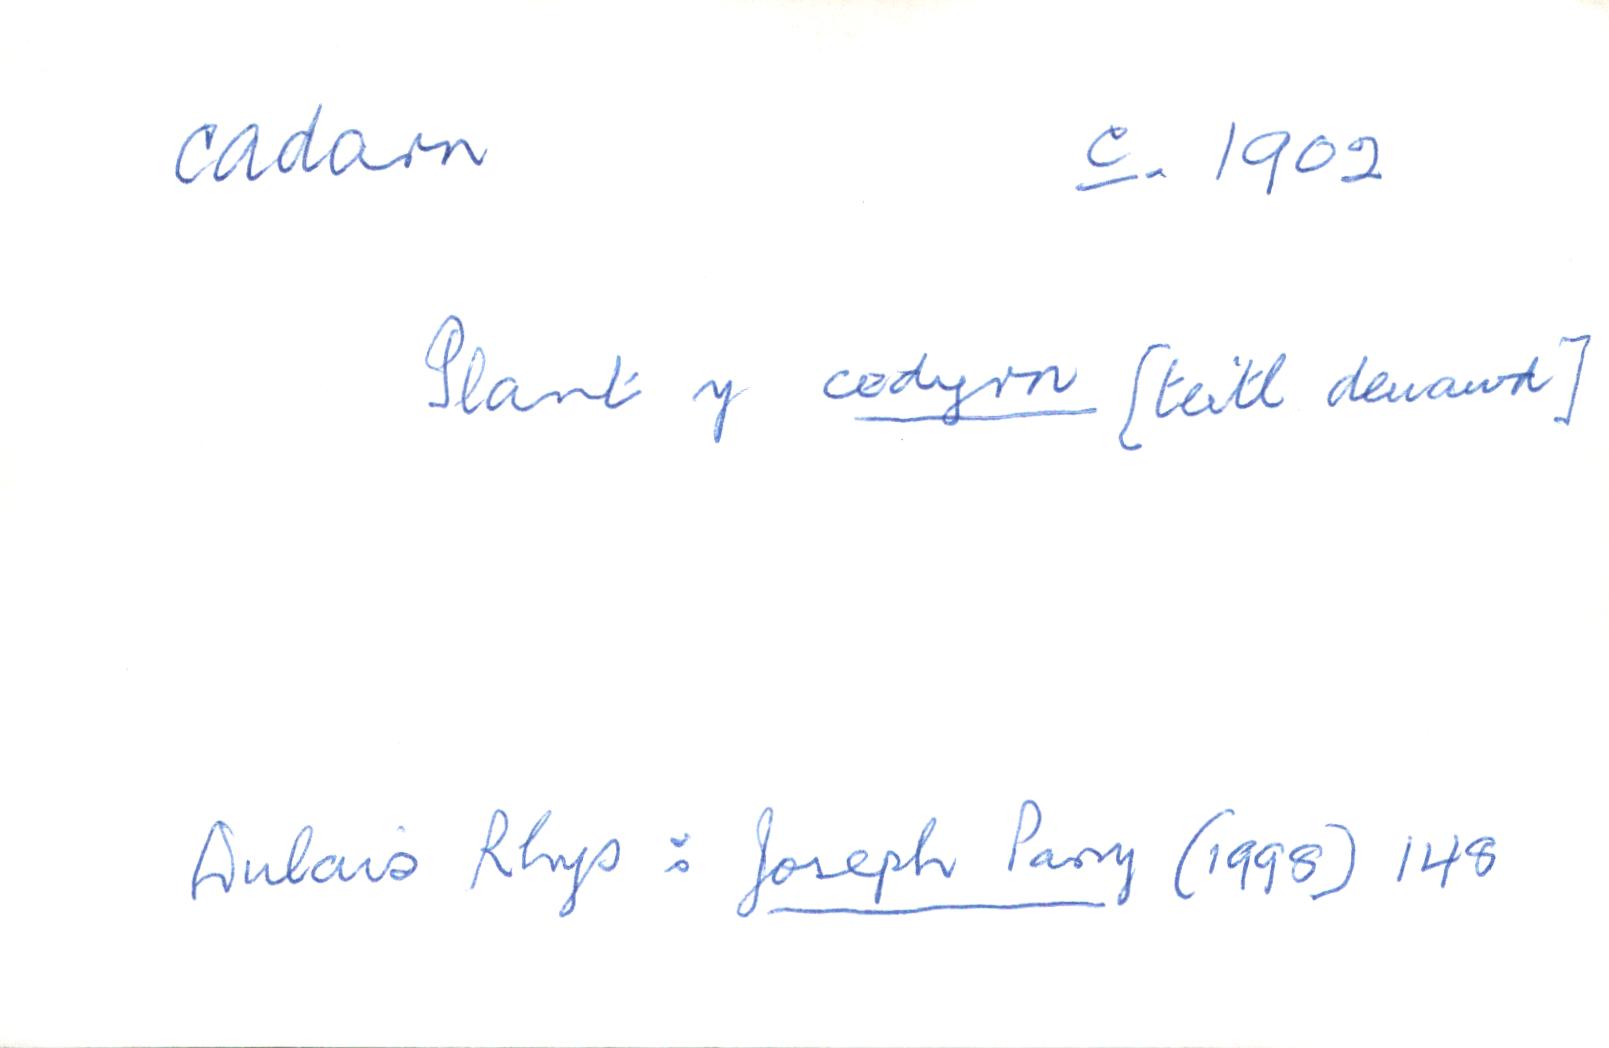 cadarn c. 1902
Plant y cedyrn [teitl deuawd]
Dulais Rhys : Joseph Parry (1998) 148